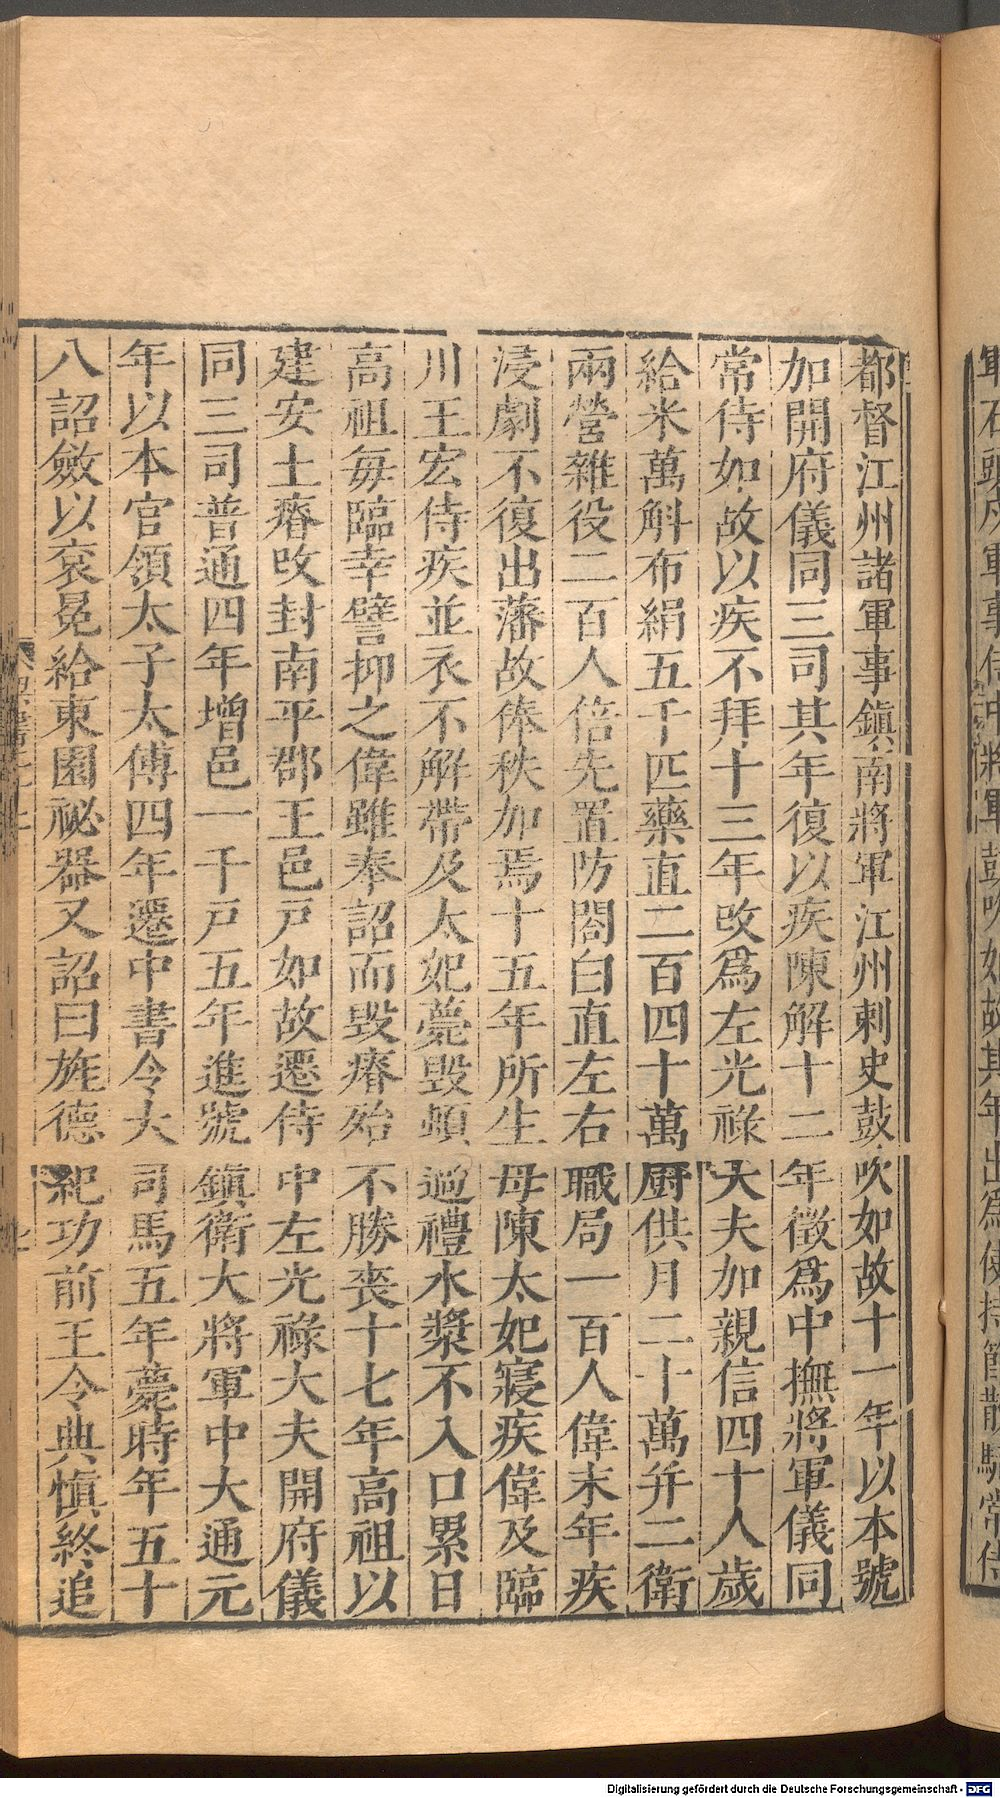 都督江州諸軍事鎮南將軍江州刺史鼓吹如故十一年以本號
加開府儀同三司其年復以疾陳解十二年徵爲中撫將軍儀同
常侍如故以疾不拜十三年改爲左光祿大夫加親信四十人歲
給米萬斛布絹五千匹藥直二百四十萬厨供月二十萬并二衛
兩營雜役二百人倍先置防閤白直左右職局一百人偉末年疾
浸劇不復出藩故俸秩加焉十五年所生母陳太妃寢疾偉及臨
川王宏侍疾並衣不解帶及太妃薨毀頓過禮水漿不入口累日
高祖每臨幸譬抑之偉雖奉詔而毀瘠殆不勝喪十七年高祖以
建安土瘠改封南平郡王邑戸如故遷侍中左光祿大夫開府儀
同三司普通四年增邑一千戸五年進號鎮衛大將軍中大通元
年以本官領太子太傅四年遷中書令大司馬五年薨時年五十
八詔斂以衮冕給東園祕器又詔曰旌德紀功前王令典慎終追
Digitalisierung gefördert durch die Deutsche Forschungsgemeinschaft - DFG